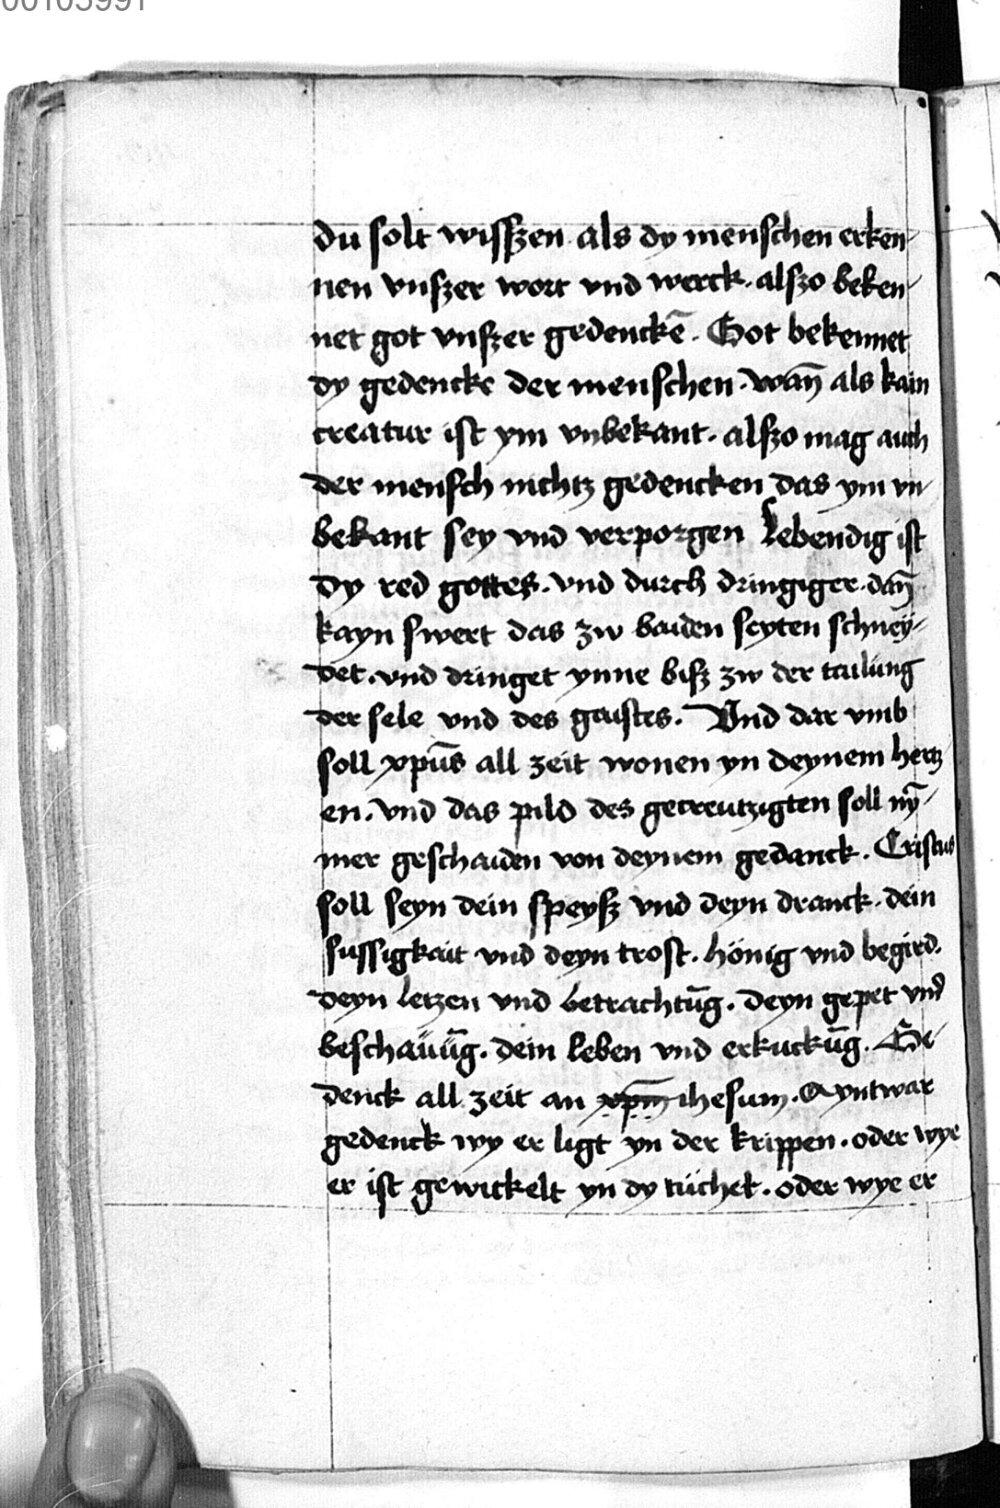 00103991
du solt wisszen als dy menschen erken-
nen vnszer wort vnd werck. alszo beken-
net got vnszer gedenckē. Got bekennet
dy gedencke der menschen. wan̄ als kain
creatur ist ym vnbekant. alszo mag auch
der mensch nichtz gedencken das ym vn-
bekant sey vnd verporgen Lebendig ist
dy red gottes. vnd durch dringiger. dan̄
kayn swert das zw baiden seyten schney-
det. vnd dringet ynne bisz zw der tailūng
der sele vnd des gaistes. Vnd dar vmb
soll xpūs all zeit wonen yn deynem hertz
en. vnd das pild des gecreutzigten soll nȳ-
mer geschaiden von deynem gedanck. Cristus
soll seyn dein speysz vnd deyn dranck. dein
sussigkait vnd deyn trost. hönig vnd begird.
deyn letzen vnd betrachtūg. deyn gepet vnd
beschaüūg. dein leben vnd erkuckūg. Ge-
denck all zeit an xpm̄ ihesum. Ayntwar
gedenck wy er ligt yn der krippen. oder wye
er ist gewickelt yn dy tüchel. oder wye er